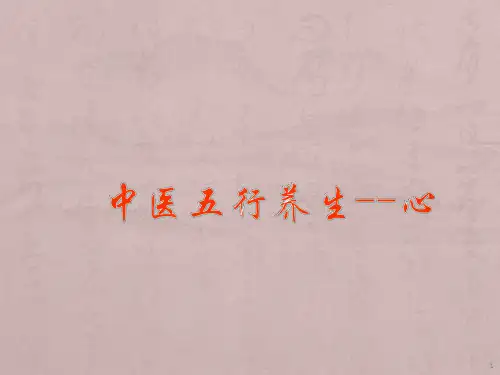 中医五行养生--心
1